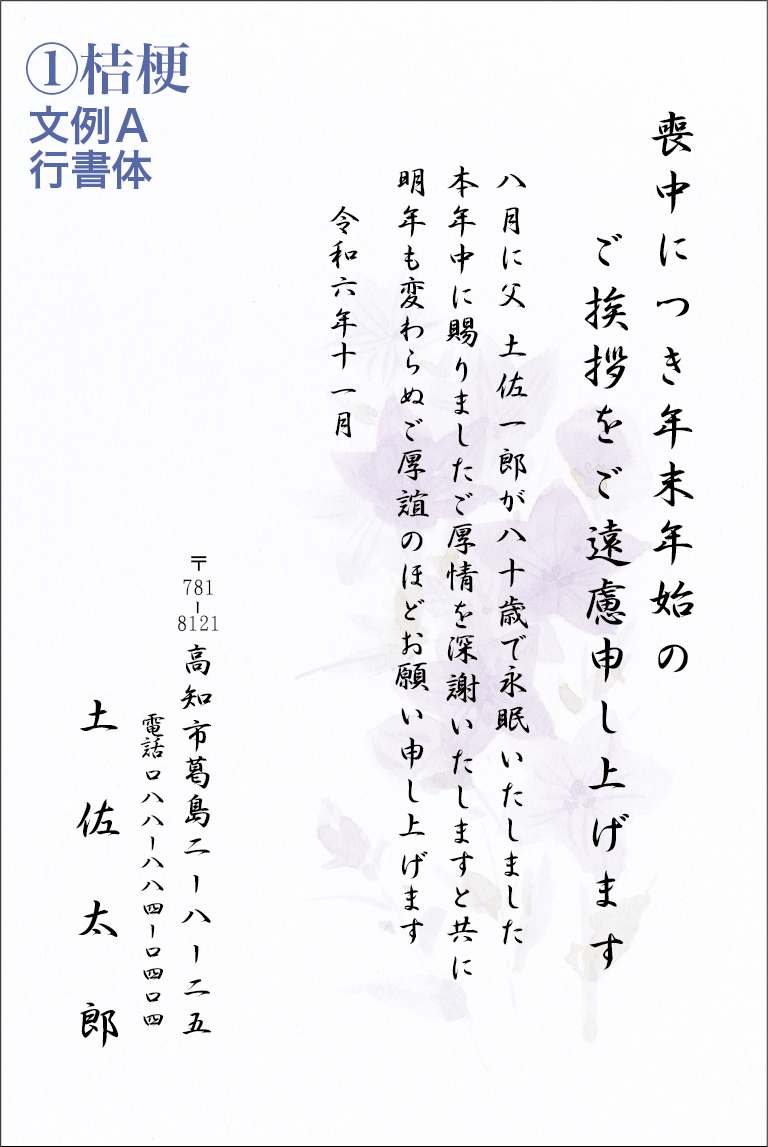 ①桔梗
文例A
行書体
喪中につき年末年始の
ご挨拶をご遠慮申し上げます
八月に父 土佐一郎が八十歳で永眠いたしました
本年中に賜りましたご厚情を深謝いたしますと共に
明年も変わらぬご厚誼のほどお願い申し上げます
令和六年十一月
〒781-8121 高知市葛島二ー八ー二五
電話〇八八ー八八四ー〇四〇四
土佐太郎